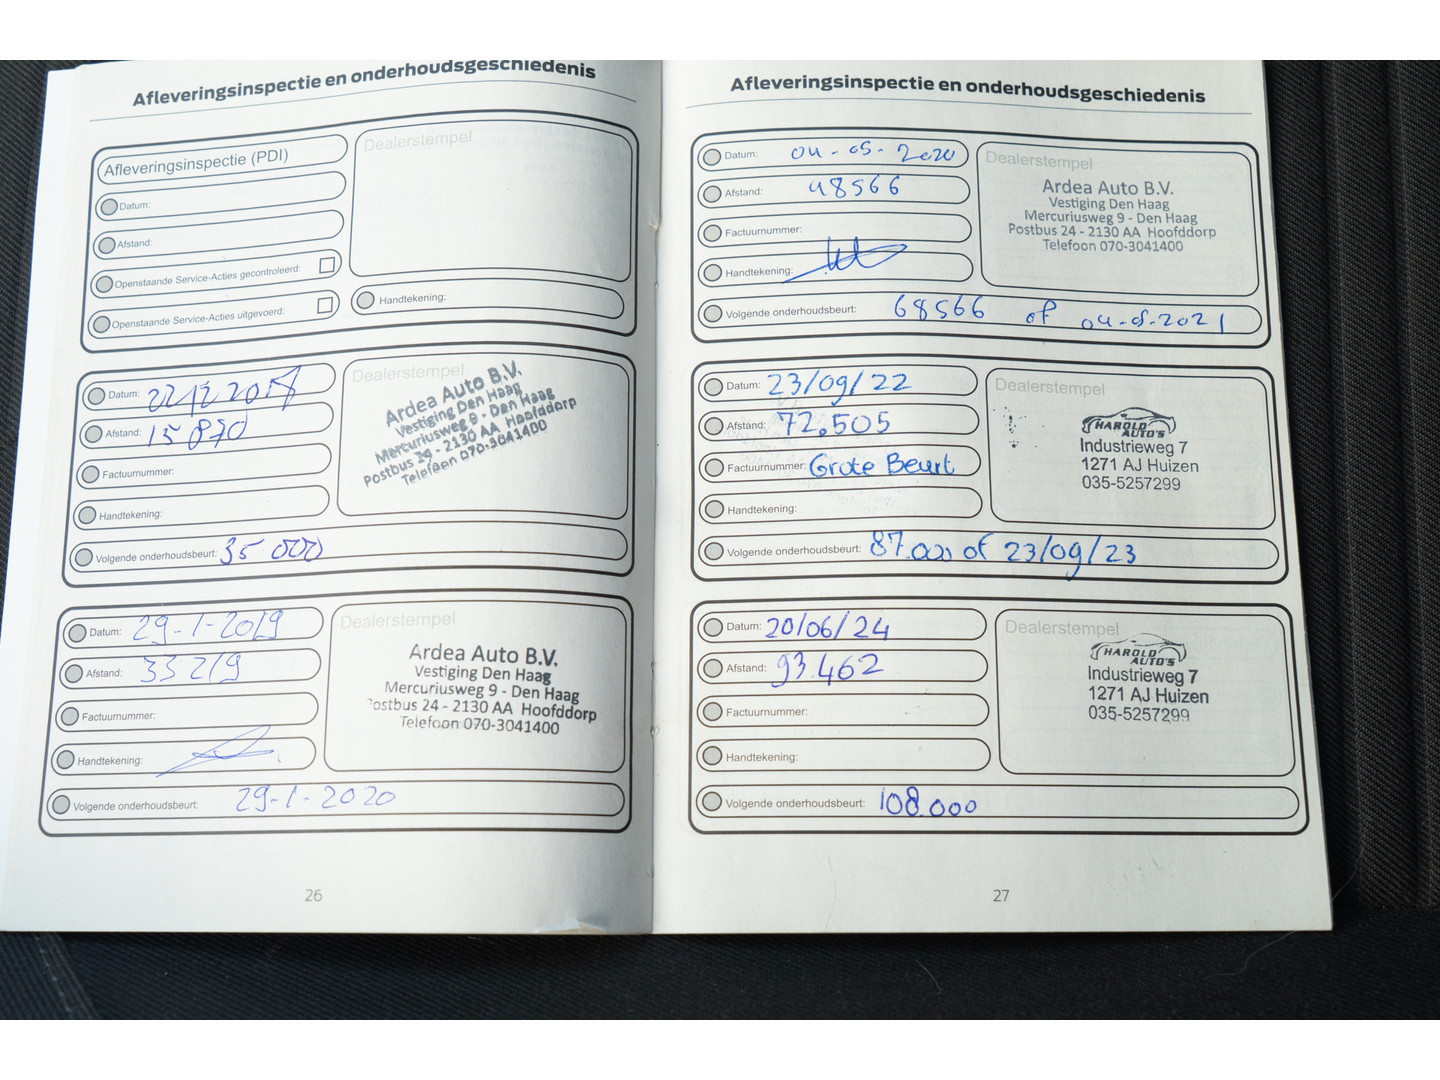 Afleveringsinspectie en onderhoudsgeschiedenis
Afleveringsinspectie (PDI)
Datum:
Afstand:
Openstaande Service-Acties gecontroleerd:
Openstaande Service-Acties uitgevoerd:
Dealerstempel
Handtekening:
Datum: 22/12 2017
Afstand: 15870
Factuurnummer:
Handtekening:
Volgende onderhoudsbeurt: 35 000
Dealerstempel
Ardea Auto B.V.
Vestiging Den Haag
Mercuriusweg 9 - Den Haag
Postbus 24 - 2130 AA Hoofddorp
Telefoon 070-3041400
Datum: 29-1-2019
Afstand: 33219
Factuurnummer:
Handtekening:
Volgende onderhoudsbeurt: 29-1-2020
Dealerstempel
Ardea Auto B.V.
Vestiging Den Haag
Mercuriusweg 9 - Den Haag
Postbus 24 - 2130 AA Hoofddorp
Telefoon 070-3041400
26
Afleveringsinspectie en onderhoudsgeschiedenis
Datum: 04-05-2020
Afstand: 48566
Factuurnummer:
Handtekening:
Volgende onderhoudsbeurt: 68566 of 04-05-2021
Dealerstempel
Ardea Auto B.V.
Vestiging Den Haag
Mercuriusweg 9 - Den Haag
Postbus 24 - 2130 AA Hoofddorp
Telefoon 070-3041400
Datum: 23/09/22
Afstand: 72.505
Factuurnummer: Grote Beurt
Handtekening:
Volgende onderhoudsbeurt: 87.000 of 23/09/23
Dealerstempel
HAROLD
AUTO'S
Industrieweg 7
1271 AJ Huizen
035-5257299
Datum: 20/06/24
Afstand: 93.462
Factuurnummer:
Handtekening:
Volgende onderhoudsbeurt: 108.000
Dealerstempel
HAROLD
AUTO'S
Industrieweg 7
1271 AJ Huizen
035-5257299
27